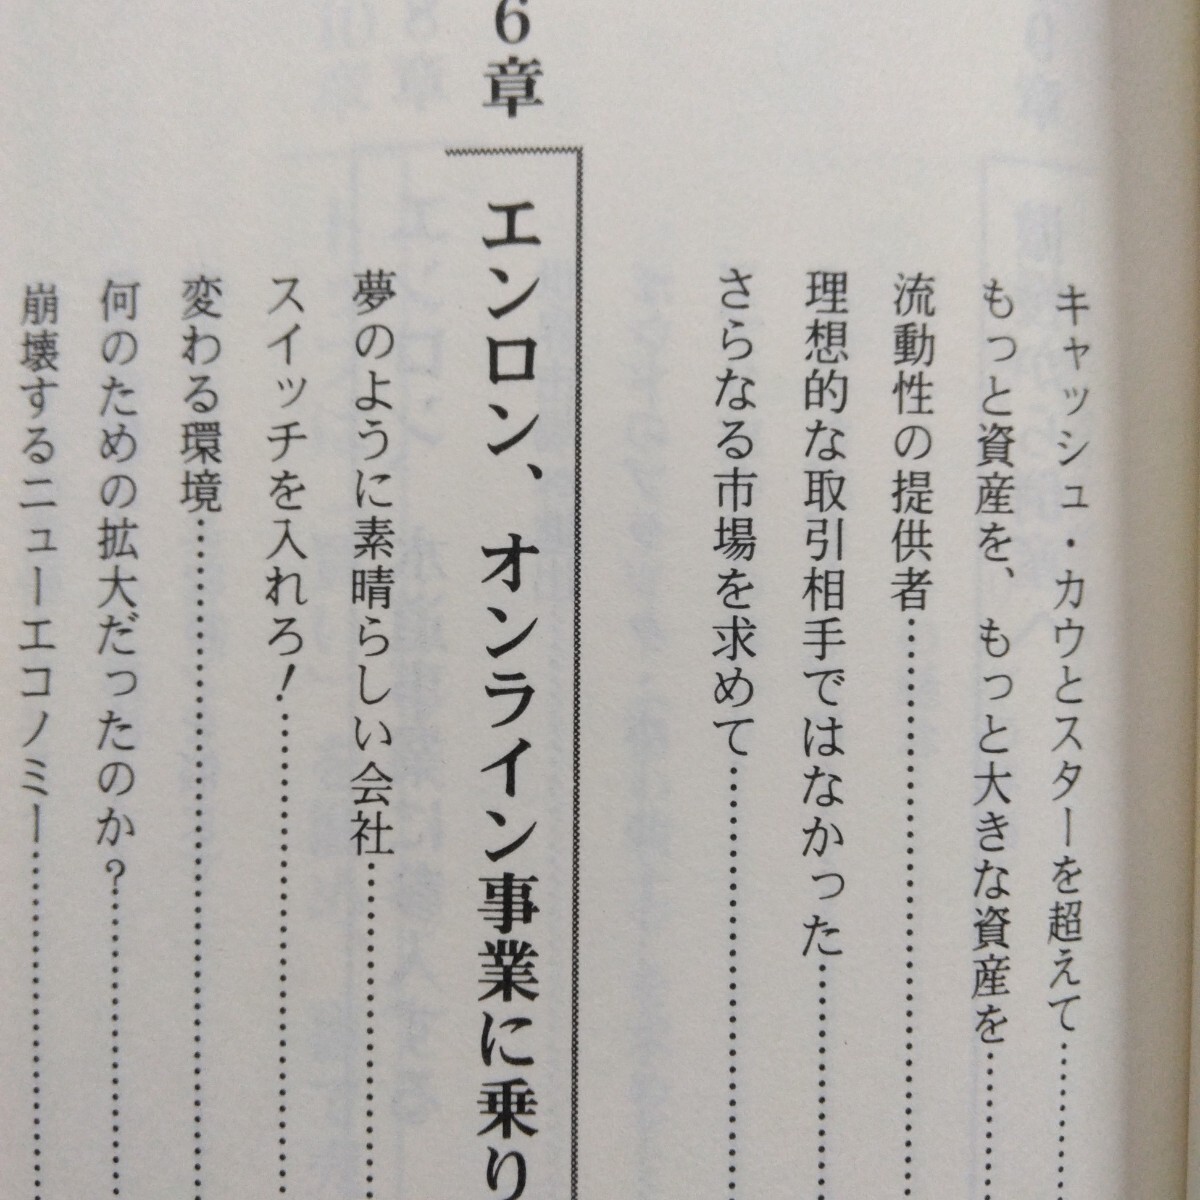 キャッシュ・カウとスターを超えて…………
もっと資産を、もっと大きな資産を…………
流動性の提供者…………
理想的な取引相手ではなかった…………
さらなる市場を求めて…………
6章
エンロン、オンライン事業に乗り
夢のように素晴らしい会社…………
スイッチを入れろ！…………
変わる環境…………
何のための拡大だったのか？…………
崩壊するニューエコノミー…………